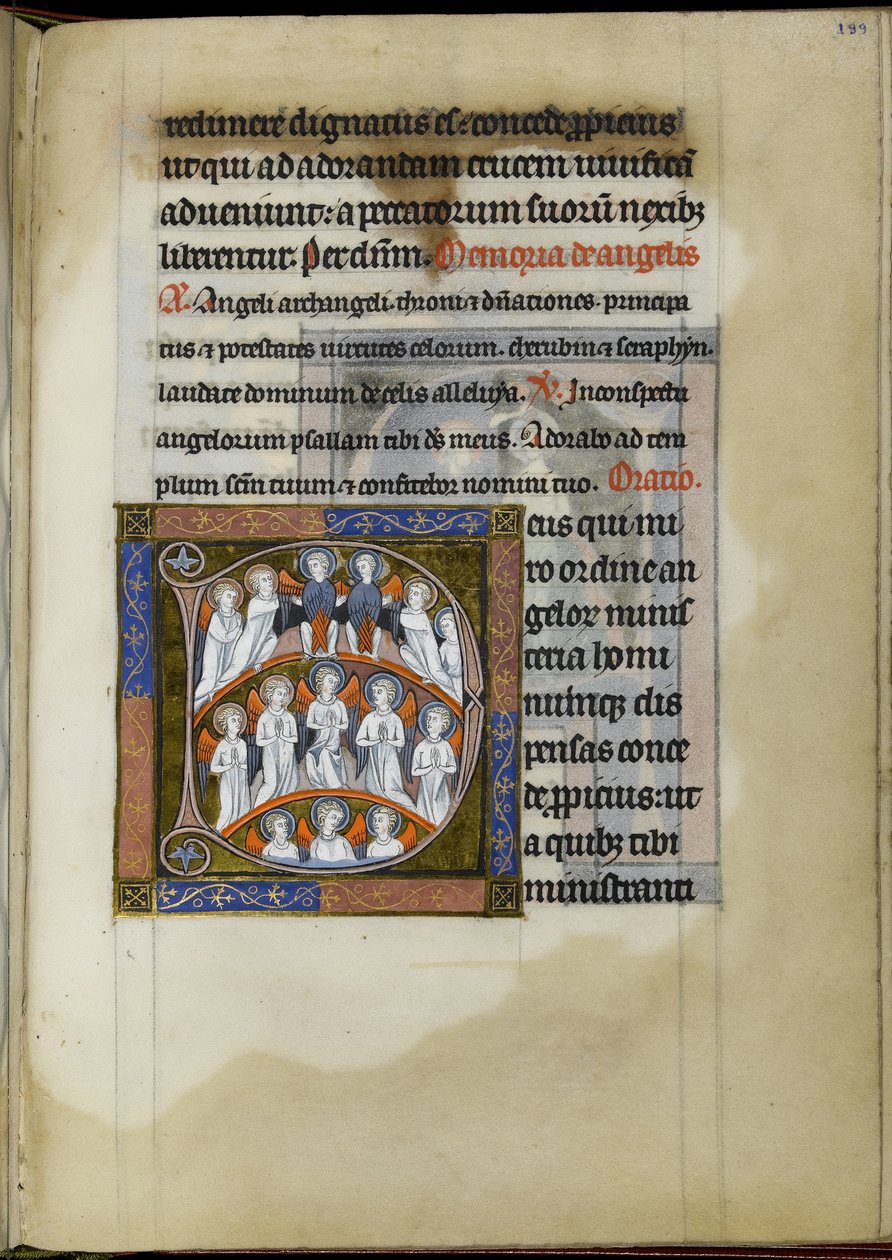 199
redimere dignatus es: concede ꝓpicius
ut qui ad adorandam crucem uiuificā
adueniunt: a peccatorum suorū nexibꝫ
liberentur. Per dn̄m. Memoria de angelis
A. Angeli archangeli. throni ⁊ dn̄ationes. principa
tus ⁊ potestates uirtutes celorum. cherubin ⁊ seraphyn.
laudate dominum de celis alleluya. V. In conspectu
angelorum psallam tibi ds̄ meus. Adorabo ad tem
plum scm̄ tuum ⁊ confitebor nomini tuo. Oratio.
eus qui mi
ro ordine an
geloꝝ minis
teria homi
numqꝫ dis
pensas conce
de ꝓpicius: ut
a quibꝫ tibi
ministranti